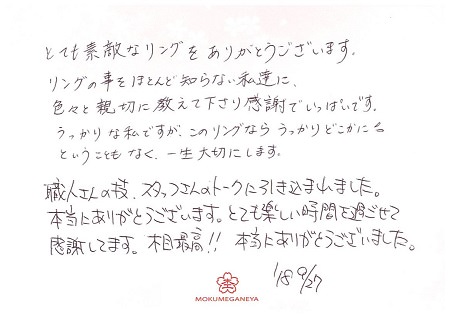 とても素敵なリングをありがとうございます。
リングの事をほとんど知らない私達に、
色々と親切に教えて下さり感謝でいっぱいです。
うっかりな私ですが、このリングなら うっかりどこかに
ということもなく、一生大切にします。
職人さんの技、スタッフさんのトークに引き込まれました。
本当にありがとうございます。とても楽しい時間を過ごせて
感謝してます。木目最高!! 本当にありがとうございました。
'18 9/27
MOKUMEGANEYA